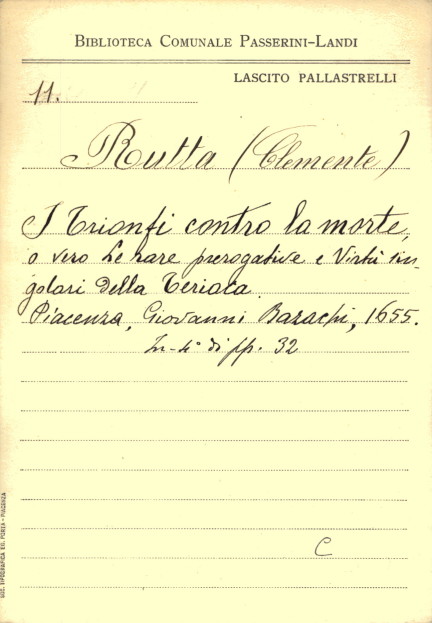 BIBLIOTECA COMUNALE PASSERINI-LANDI
LASCITO PALLASTRELLI
11.
Rutta (Clemente)
I Trionfi contro la morte,
o vero Le rare prerogative e Virtù sin-
golari della Teriaca.
Piacenza, Giovanni Bazachi, 1655.
In-4° di pp. 32
C
SOC. TIPOGRAFICA ED. PORTA - PIACENZA